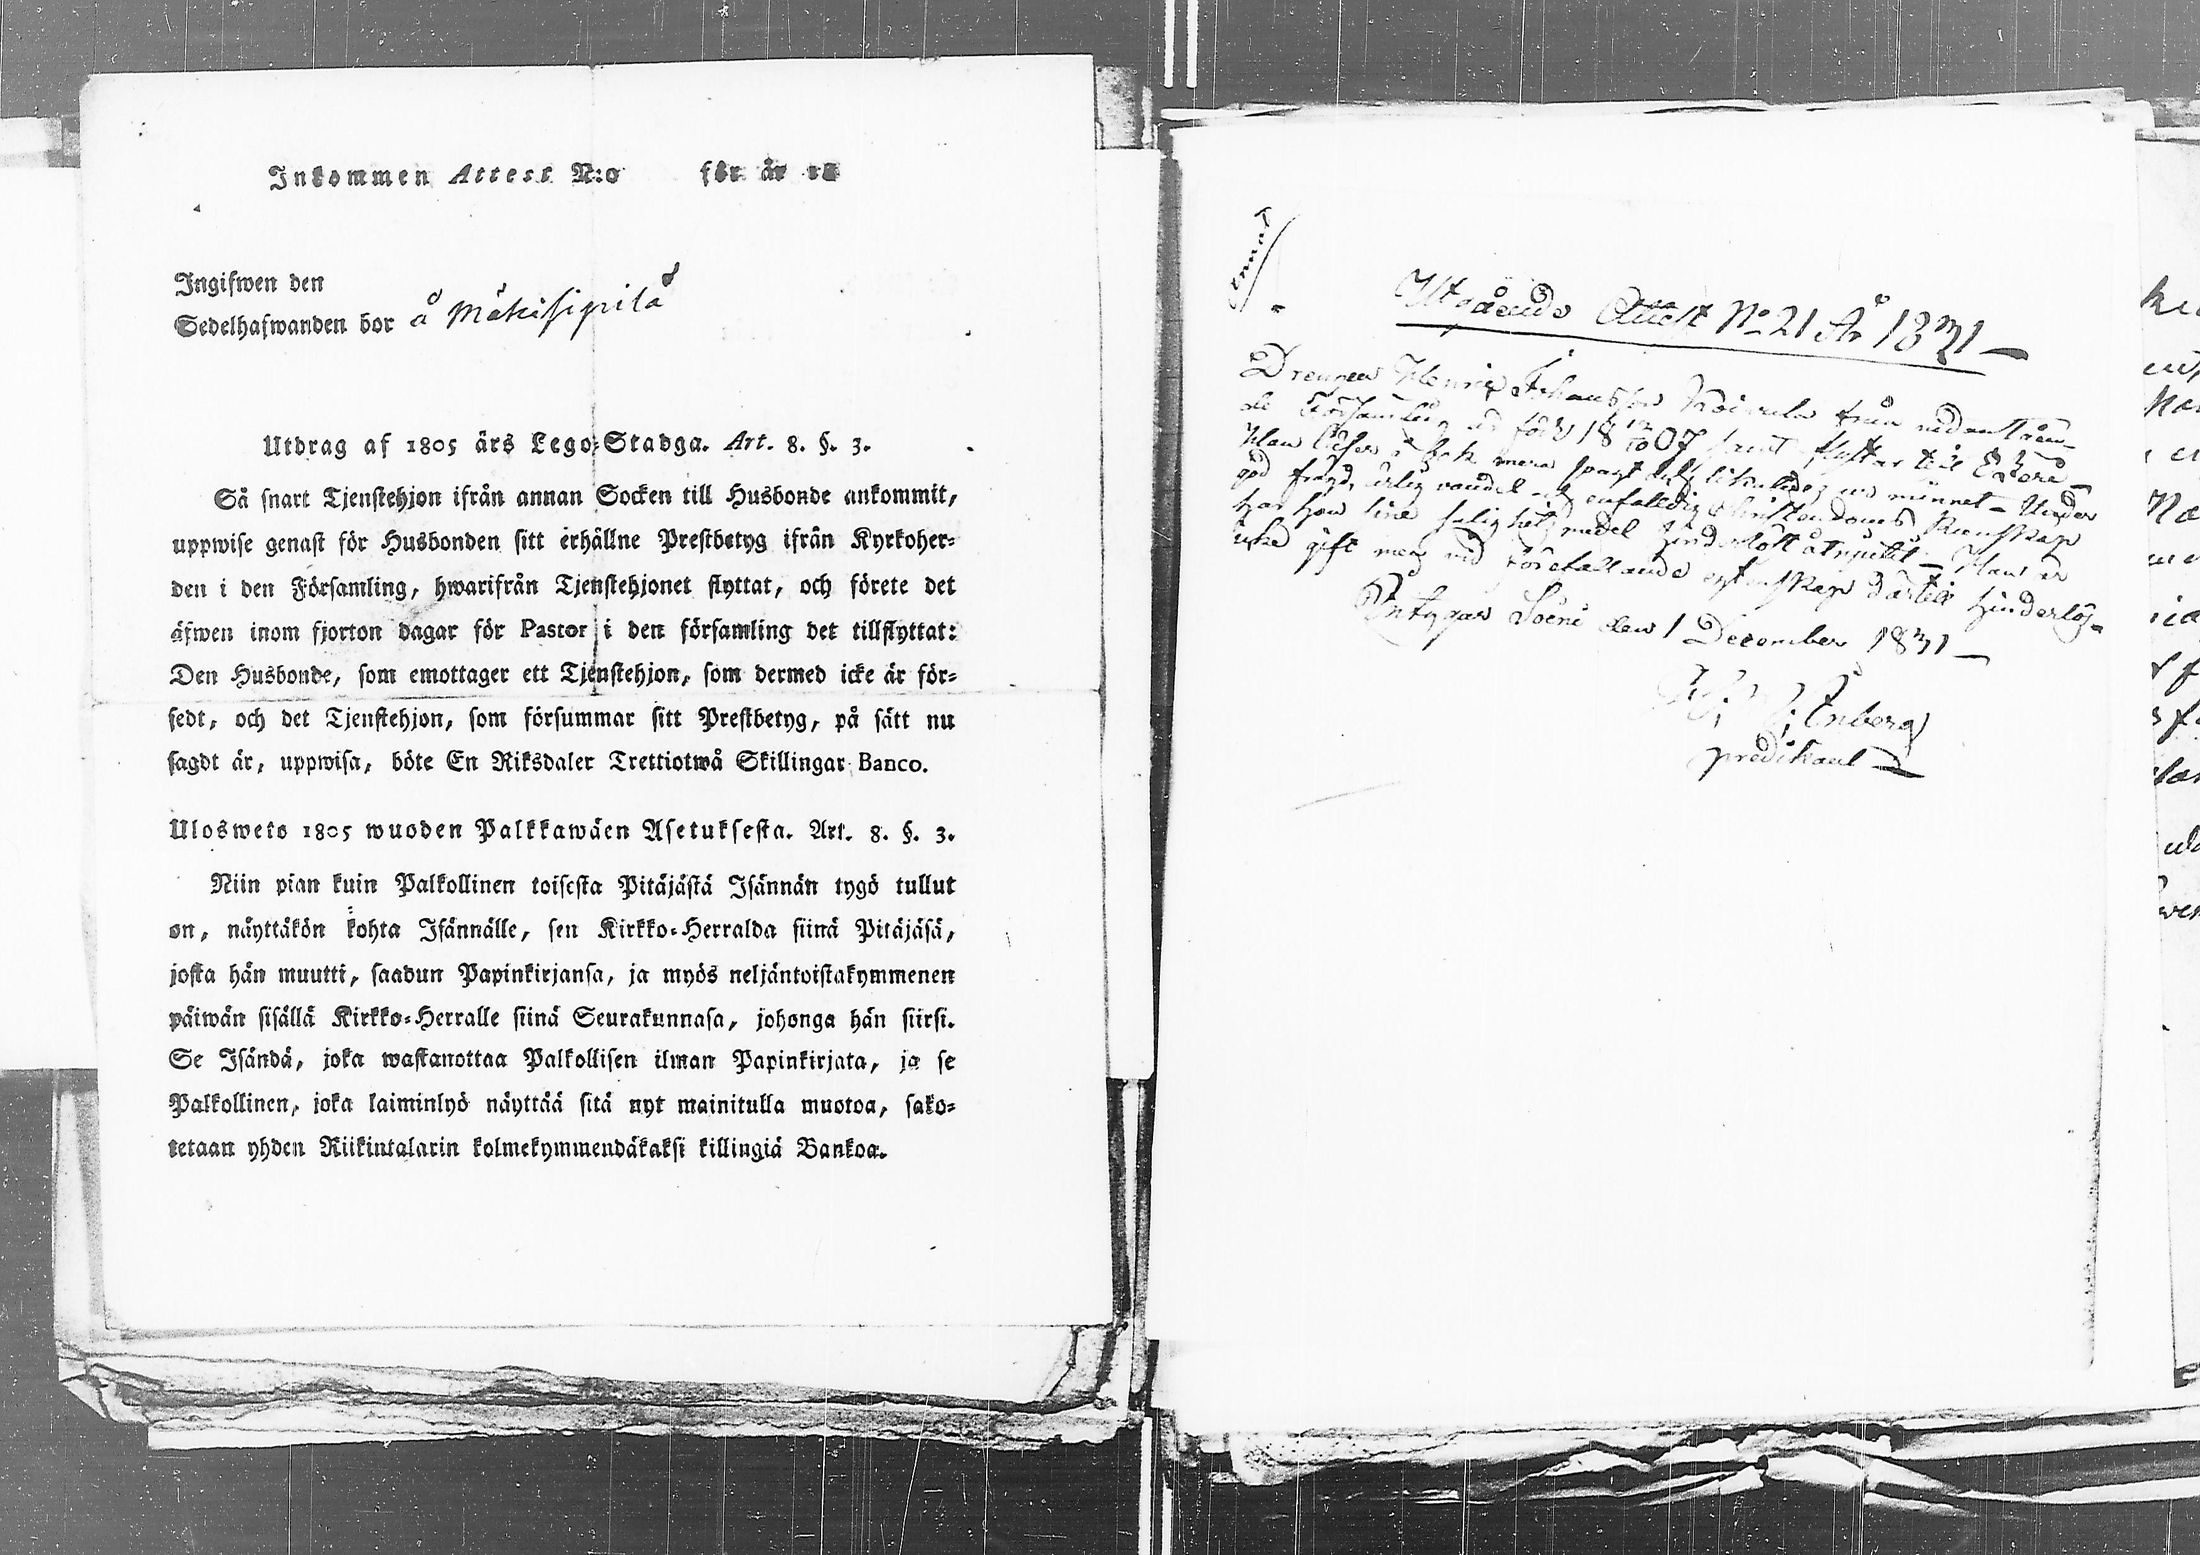 Inkommen Attest N:o för år 18
Ingifwen den
Sedelhafwanden bor å Mäkisipilä
Utdrag af 1805 års Lego-Stadga. Art. 8. §. 3.
Så snart Tjenstehjon ifrån annan Socken till Husbonde ankommit,
uppwise genast för Husbonden sitt erhållne Prestbetyg ifrån Kyrkoher-
den i den Församling, hwarifrån Tjenstehjonet flyttat, och förete det
äfwen inom fjorton dagar för Pastor i den församling det tillflyttat:
Den Husbonde, som emottager ett Tjenstehjon, som dermed icke är för-
sedt, och det Tjenstehjon, som försummar sitt Prestbetyg, på sätt nu
sagdt är, uppwisa, böte En Riksdaler Trettiotwå Skillingar Banco.
Ulosweto 1805 wuoden Palkkawäen Asetuksesta. Art. 8. §. 3.
Niin pian kuin Palkollinen toisesta Pitäjästä Isännän tygö tullut
on, näyttäkön kohta Isännälle, sen Kirkko-Herralda siinä Pitäjäsä,
josta hän muutti, saadun Papinkirjansa, ja myös neljäntoistakymmenen
päiwän sisällä Kirkko-Herralle siinä Seurakunnasa, johonga hän siirsi.
Se Isändä, joka wastanottaa Palkollisen ilman Papinkirjata, ja se
Palkollinen, joka laiminlyö näyttää sitä nyt mainitulla muotoa, sako-
tetaan yhden Riikintalarin kolmekymmendäkaksi killingiä Bankoa.
Utgående Attest No 21 År 1831
Drengen Henric Johansson Koivula från nedantäm-
de Församling är född 18 12/10 07 samt flyttar till
Han läser i bok mera svagt men utur minnet - Under
god frägd, ärlig vandel och enfalldig Christendoms Kunskap
har han sine salighets medel hinderlöst åtnjutit - Han är
icke gift men vid förefallande egtenskap dertill hinderlös
Intygar Soini den 1 December 1831
predikant